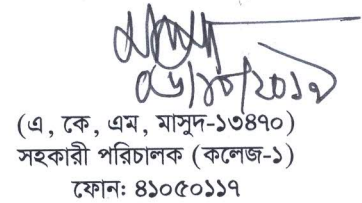 (এ, কে, এম, মাসুদ-১৩৪৭০)
সহকারী পরিচালক (কলেজ-১)
ফোনঃ ৪১০৫০১১৭